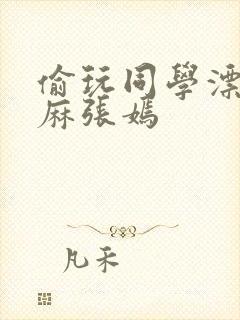 偷玩同學漂
麻張嫣
凡禾